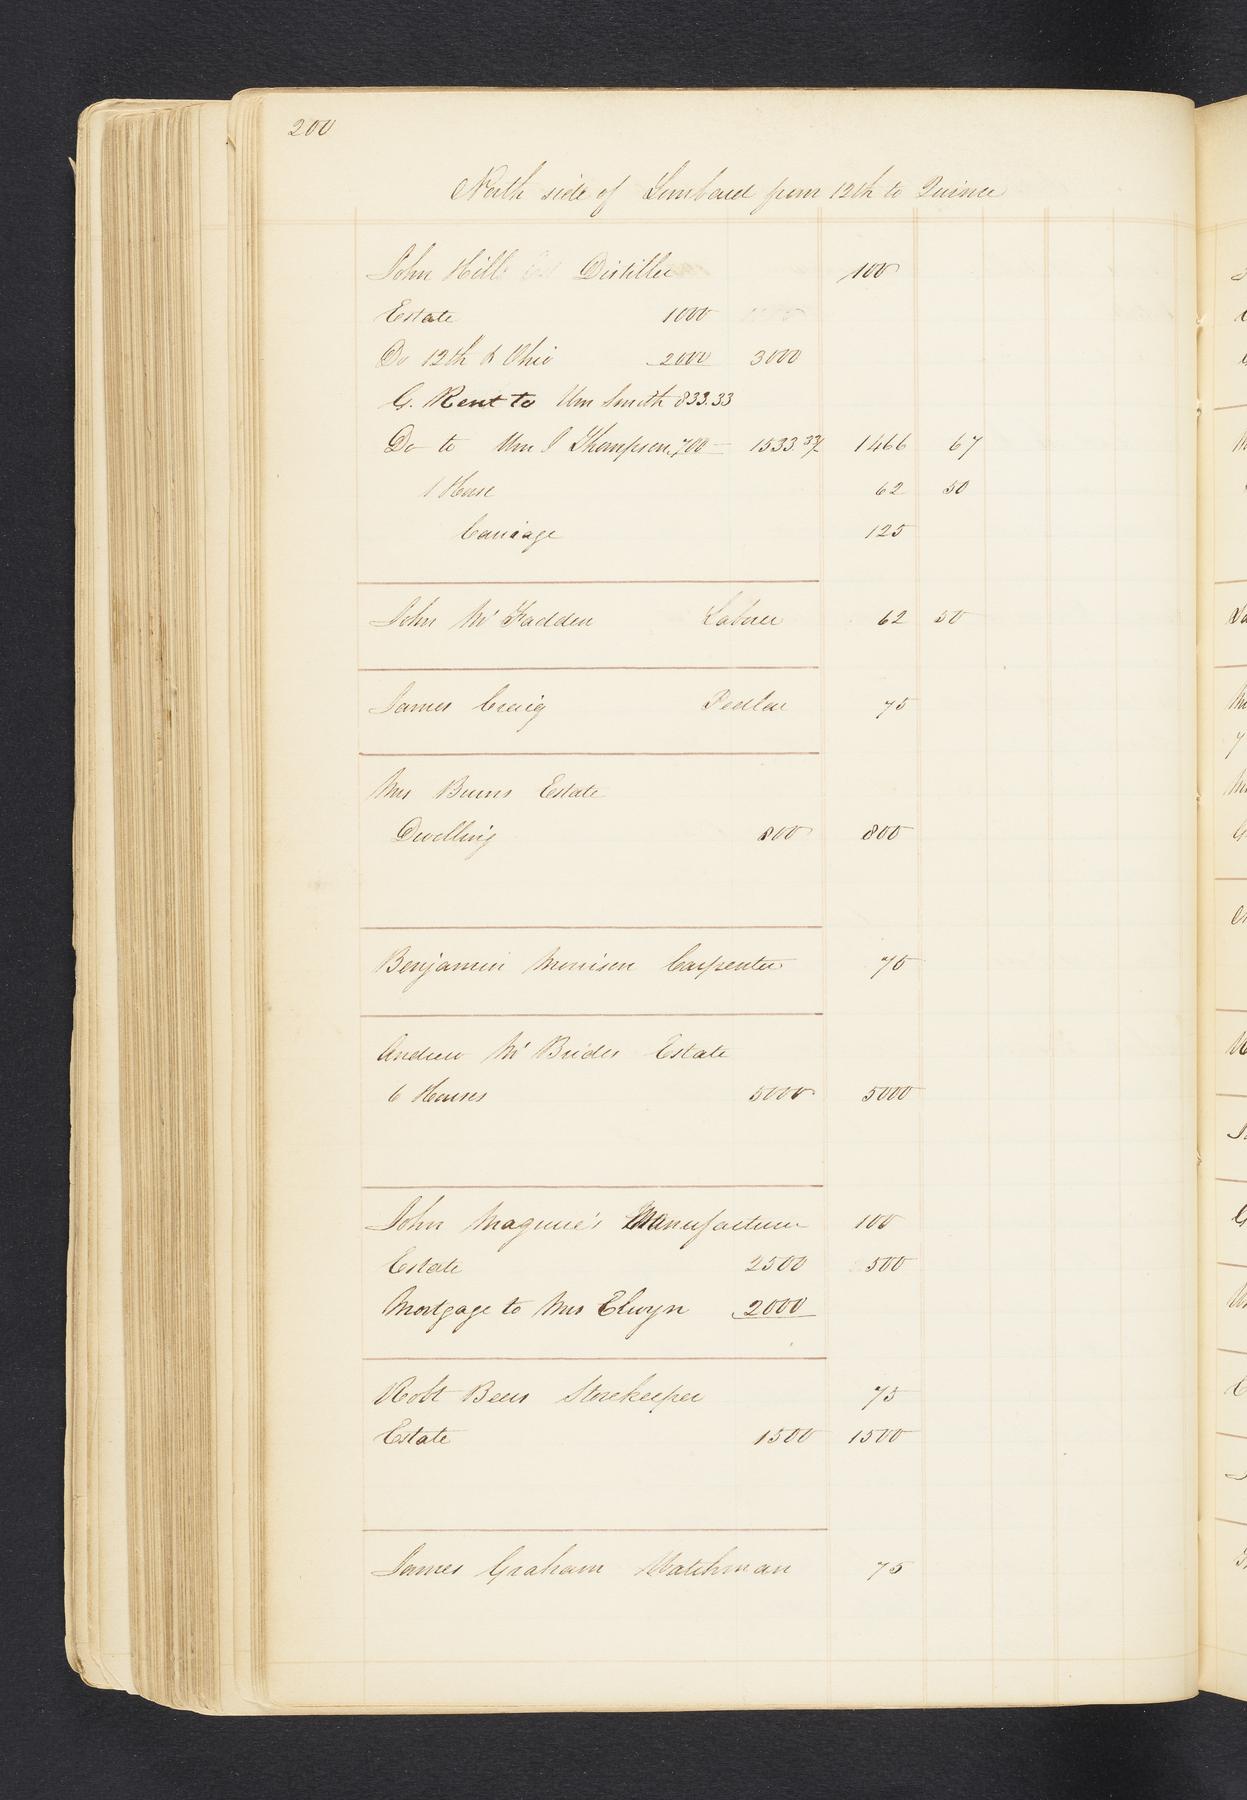 200
North side of Lombard from 12th to Quince
John Hill Distiller 100
Estate 1000
Do 12th & Ohio 2000 3000
G. Rent to Wm Smith 833.33
Do to Wm J Thompson 700 — 1533.33 1466 67
1 Horse 62 50
Carriage 125
John McFadden Laborer 62 50
James Craig Pedlar 75
Mrs Burns Estate
Dwelling 800 800
Benjamin Morrison Carpenter 75
Andrew McBrides Estate
6 Houses 5000 5000
John Maguire's Manufacturer 100
Estate 2500 500
Mortgage to Mrs Elwyn 2000
Robt Beers Storekeeper 75
Estate 1500 1500
James Graham Watchman 75